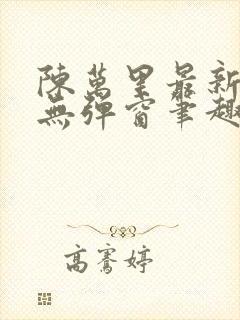 陳萬里最新
無彈窗筆趣
高騫婷